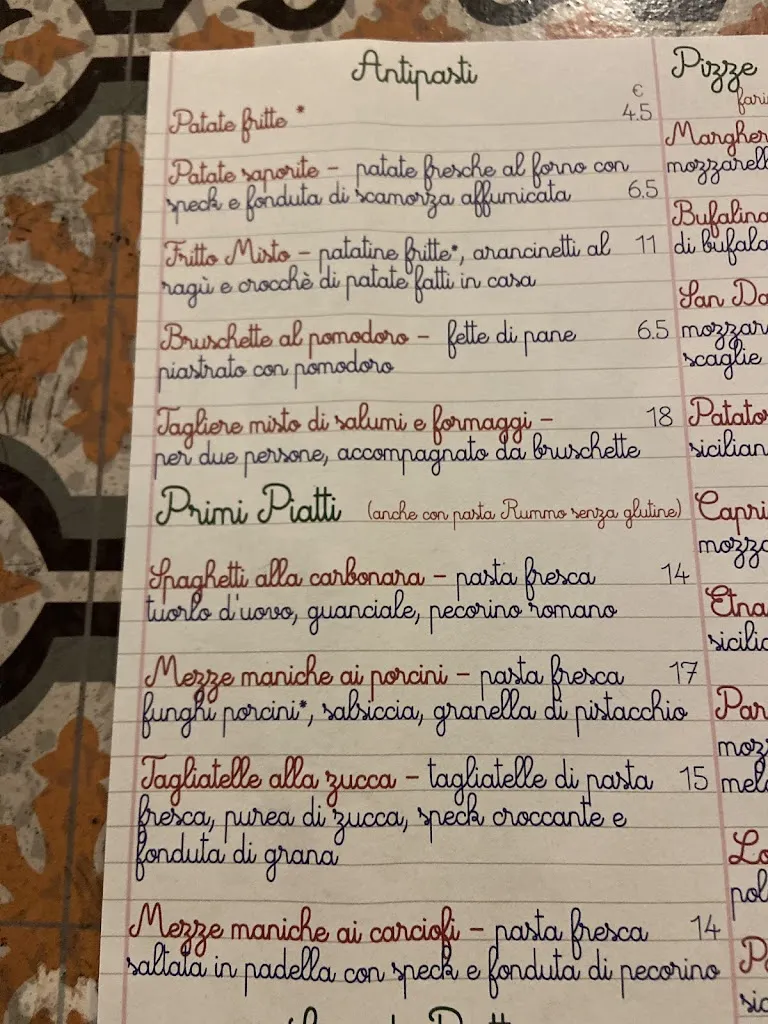 Antipasti
€
Patate fritte * 4.5
Patate saporite - patate fresche al forno con
speck e fonduta di scamorza affumicata 6.5
Fritto Misto - patatine fritte*, arancinetti al 11
ragù e crocchè di patate fatti in casa
Bruschette al pomodoro - fette di pane 6.5
piastrato con pomodoro
Tagliere misto di salumi e formaggi - 18
per due persone, accompagnato da bruschette
Primi Piatti (anche con pasta Rummo senza glutine)
Spaghetti alla carbonara - pasta fresca 14
tuorlo d'uovo, guanciale, pecorino romano
Mezze maniche ai porcini - pasta fresca 17
funghi porcini*, salsiccia, granella di pistacchio
Tagliatelle alla zucca - tagliatelle di pasta 15
fresca, purea di zucca, speck croccante e
fonduta di grana
Mezze maniche ai carciofi - pasta fresca 14
saltata in padella con speck e fonduta di pecorino
Pizze
fari
Margher
mozzarell
Bufalina
di bufala
San Da
mozzar
scaglie
Patato
sicilian
Capri
mozza
Etna
sicilia
Par
moz
mel
Lo
pol
P
sic